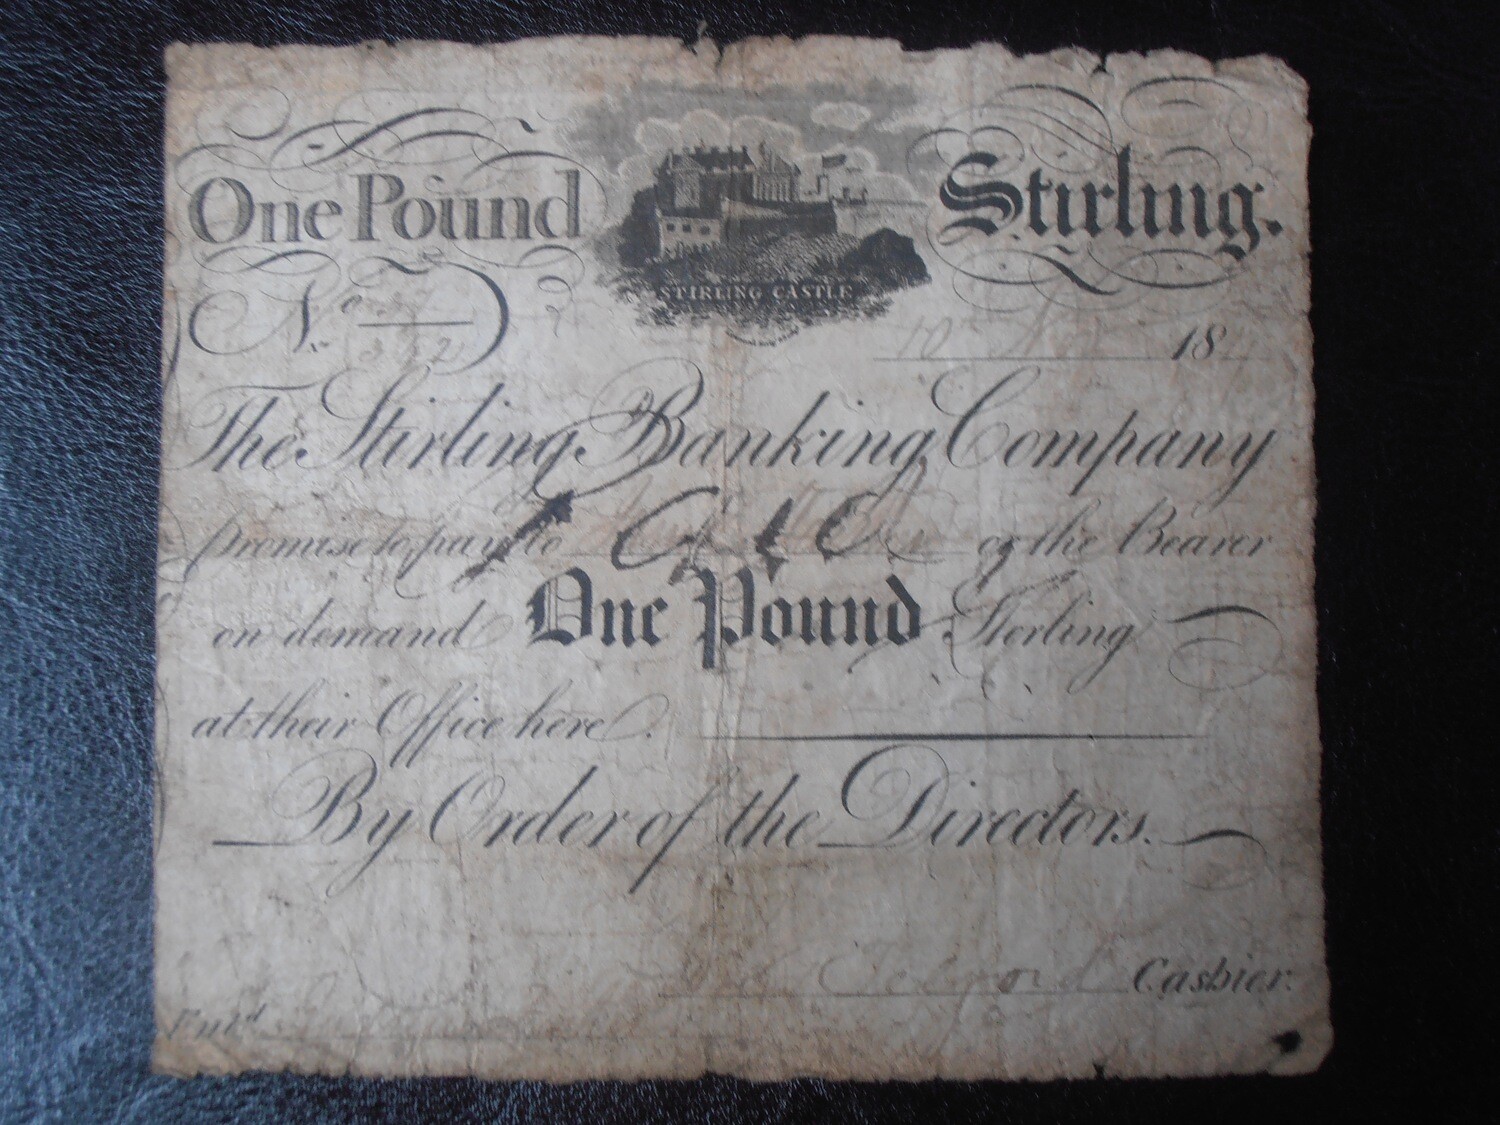 One Pound Stirling.
STIRLING CASTLE
No 352
10 18
The Stirling Banking Company
promise to pay to or the Bearer
on demand One Pound Sterling
at their Office here.
By Order of the Directors.
Telford Cashier.
Entd